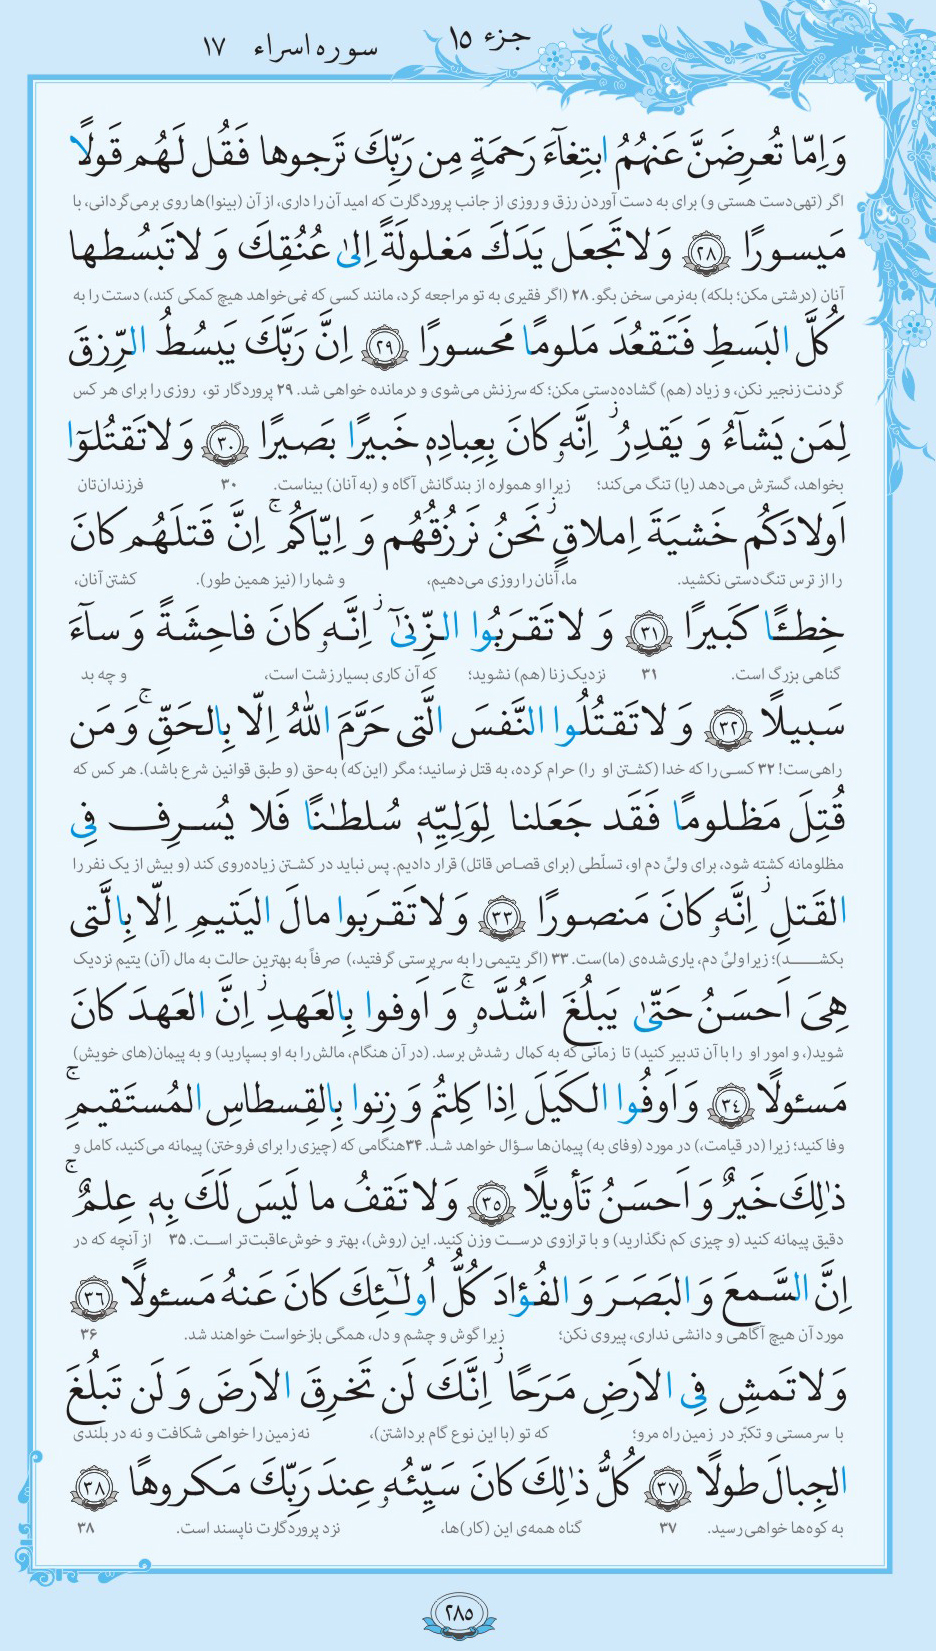 جزء ۱۵
سوره اسراء ۱۷
وَ اِمّا تُعرِضَنَّ عَنهُمُ ابتِغآءَ رَحمَةٍ مِن رَبِّكَ تَرجوها فَقُل لَهُم قَولًا
اگر (تهی‌دست هستی و) برای به دست آوردن رزق و روزی از جانب پروردگارت که امید آن را داری، از آن (بینوا)ها روی برمی‌گردانی، با
مَيسورًا ﴿۲۸﴾ وَ لا تَجعَل يَدَكَ مَغلولَةً اِلىٰ عُنُقِكَ وَ لا تَبسُطها
آنان (درشتی مکن؛ بلکه) به‌نرمی سخن بگو. ۲۸ (اگر فقیری به تو مراجعه کرد، مانند کسی که نمی‌خواهد هیچ کمکی کند،) دستت را به
كُلَّ البَسطِ فَتَقعُدَ مَلومًا مَحسورًا ﴿۲۹﴾ اِنَّ رَبَّكَ يَبسُطُ الرِّزقَ
گردنت زنجیر نکن، و زیاد (هم) گشاده‌دستی مکن؛ که سرزنش می‌شوی و درمانده خواهی شد. ۲۹ پروردگار تو، روزی را برای هر کس
لِمَن يَشآءُ وَ يَقدِرُ ۚ اِنَّهٗ كانَ بِعِبادِهٖ خَبيرًا بَصيرًا ﴿۳۰﴾ وَ لا تَقتُلوٓا
بخواهد، گسترش می‌دهد (یا) تنگ می‌کند؛ زیرا او همواره از بندگانش آگاه و (به آنان) بیناست. ۳۰ فرزندان‌تان
اَولادَكُم خَشيَةَ اِملاقٍ ۖ نَحنُ نَرزُقُهُم وَ اِيّاكُم ۚ اِنَّ قَتلَهُم كانَ
را از ترس تنگ‌دستی نکشید. ما، آنان را روزی می‌دهیم، و شما را (نیز همین طور). کشتن آنان،
خِطـًٔا كَبيرًا ﴿۳۱﴾ وَ لا تَقرَبُوا الزِّنىٰٓ ۖ اِنَّهٗ كانَ فاحِشَةً وَ سآءَ
گناهی بزرگ است. ۳۱ نزدیک زنا (هم) نشوید؛ که آن کاری بسیار زشت است، و چه بد
سَبيلًا ﴿۳۲﴾ وَ لا تَقتُلُوا النَّفسَ الَّتى حَرَّمَ اللّٰهُ اِلّا بِالحَقِّ ۚ وَ مَن
راهی‌ست! ۳۲ کسی را که خدا (کشتن او را) حرام کرده، به قتل نرسانید؛ مگر (این‌که) به‌حق (و طبق قوانین شرع باشد). هر کس که
قُتِلَ مَظلومًا فَقَد جَعَلنا لِوَلِيِّهٖ سُلطـٰنًا فَلا يُسرِف فِى
مظلومانه کشته شود، برای ولیِّ دم او، تسلّطی (برای قصاص قاتل) قرار دادیم. پس نباید در کشتن زیاده‌روی کند (و بیش از یک نفر را
القَتلِ ۖ اِنَّهٗ كانَ مَنصورًا ﴿۳۳﴾ وَ لا تَقرَبوا مالَ اليَتيمِ اِلّا بِالَّتى
بکشد)؛ زیرا ولیِّ دم، یاری‌شده‌ی (ما)ست. ۳۳ (اگر یتیمی را به سرپرستی گرفتید،) صرفاً به بهترین حالت به مال (آن) یتیم نزدیک
هِىَ اَحسَنُ حَتّىٰ يَبلُغَ اَشُدَّهٗ ۚ وَ اَوفوا بِالعَهدِ ۖ اِنَّ العَهدَ كانَ
شوید(، و امور او را با آن تدبیر کنید) تا زمانی که به کمال رشدش برسد. (در آن هنگام، مالش را به او بسپارید) و به پیمان(های خویش)
مَسئولًا ﴿۳۴﴾ وَ اَوفُوا الكَيلَ اِذا كِلتُم وَ زِنوا بِالقِسطاسِ المُستَقيمِ ۚ
وفا کنید؛ زیرا (در قیامت،) در مورد (وفای به) پیمان‌ها سؤال خواهد شد. ۳۴ هنگامی که (چیزی را برای فروختن) پیمانه می‌کنید، کامل و
ذٰلِكَ خَيرٌ وَ اَحسَنُ تَأويلًا ﴿۳۵﴾ وَ لا تَقفُ ما لَيسَ لَكَ بِهٖ عِلمٌ ۚ
دقیق پیمانه کنید (و چیزی کم نگذارید) و با ترازوی درست وزن کنید. این (روش)، بهتر و خوش‌عاقبت‌تر است. ۳۵ از آنچه که در
اِنَّ السَّمعَ وَ البَصَرَ وَ الفُؤادَ كُلُّ اُولـٰٓئِكَ كانَ عَنهُ مَسئولًا ﴿۳۶﴾
مورد آن هیچ آگاهی و دانشی نداری، پیروی نکن؛ زیرا گوش و چشم و دل، همگی بازخواست خواهند شد. ۳۶
وَ لا تَمشِ فِى الاَرضِ مَرَحًا ۖ اِنَّكَ لَن تَخرِقَ الاَرضَ وَ لَن تَبلُغَ
با سرمستی و تکبّر در زمین راه مرو؛ که تو (با این نوع گام برداشتن)، نه زمین را خواهی شکافت و نه در بلندی
الجِبالَ طولًا ﴿۳۷﴾ كُلُّ ذٰلِكَ كانَ سَيِّئُهٗ عِندَ رَبِّكَ مَكروهًا ﴿۳۸﴾
به کوه‌ها خواهی رسید. ۳۷ گناه همه‌ی این (کار)ها، نزد پروردگارت ناپسند است. ۳۸
۲۸۵